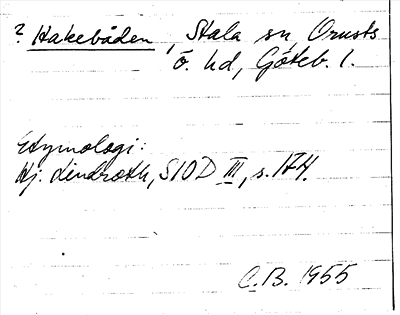 ? Hakebåden, Stala sn Orusts
ö. hd, Göteb. l.
Etymologi:
Hj. Lindroth, SIOD III, s. 174.
C.B. 1955